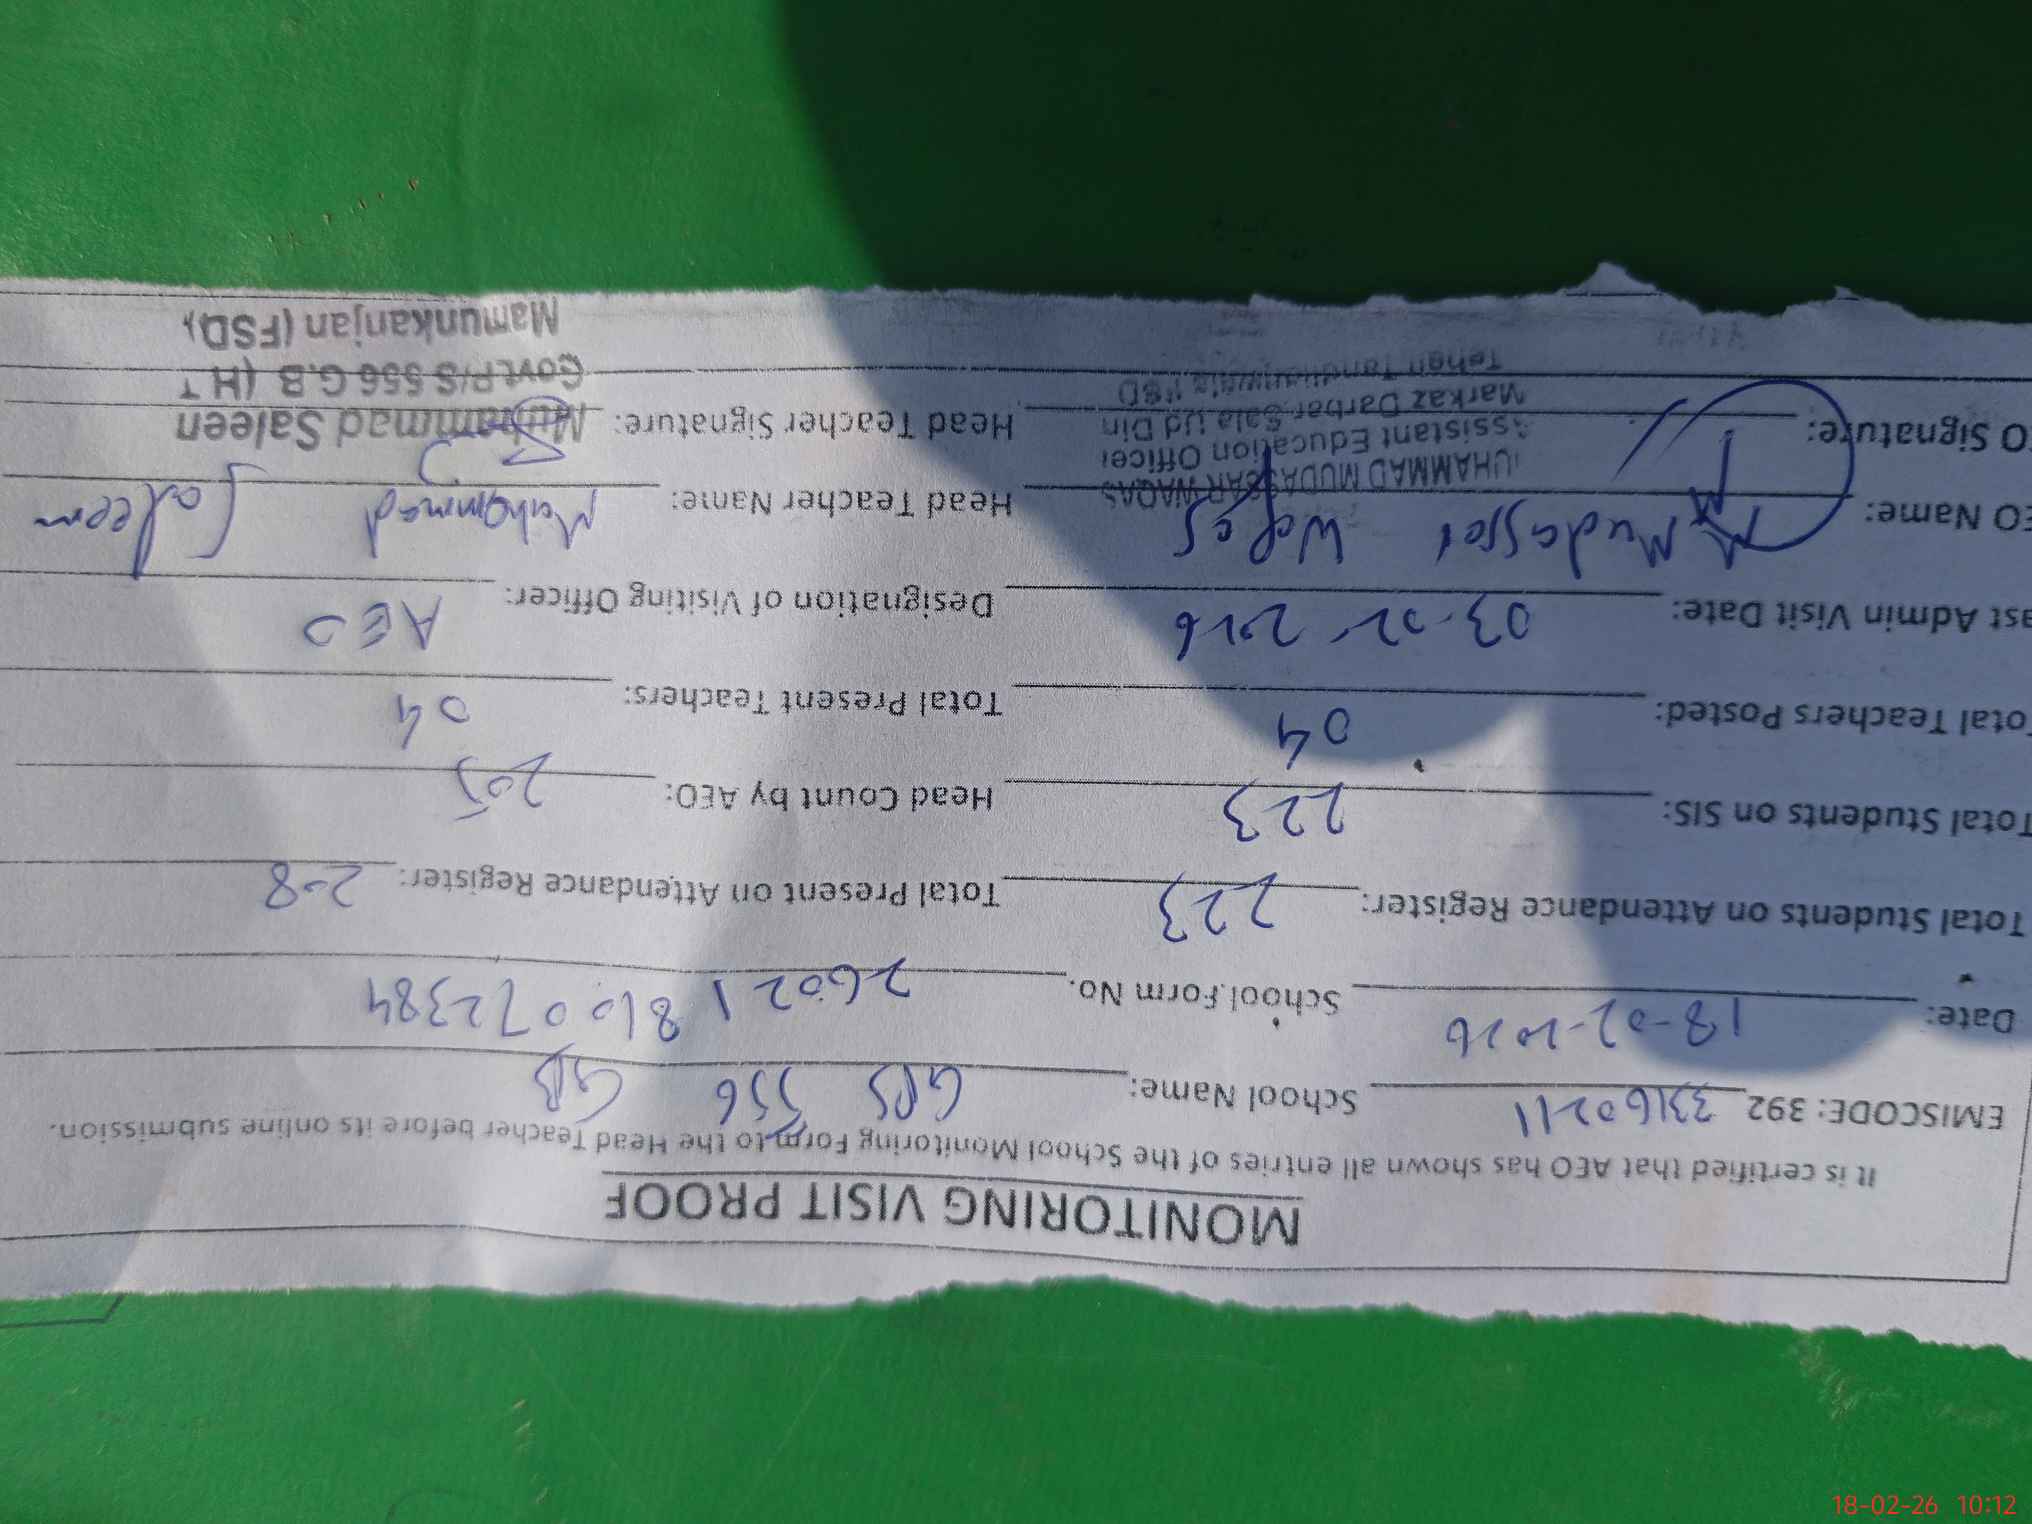 MONITORING VISIT PROOF
It is certified that AEO has shown all entries of the School Monitoring Form to the Head Teacher before its online submission.
EMISCODE: 392 33160211 School Name: GPS 556 GB
Date: 18-02-2026 School Form No. 26021810072384
Total Students on Attendance Register: 223 Total Present on Attendance Register: 208
Total Students on SIS: 223 Head Count by AEO: 205
Total Teachers Posted: 04 Total Present Teachers: 04
ast Admin Visit Date: 03-02-2026 Designation of Visiting Officer: AEO
EO Name: M Mudasser Waqas Head Teacher Name: Muhammad Saleem
UHAMMAD MUDASSAR WAQAS
O Signature: Head Teacher Signature:
Assistant Education Officer
Markaz Darbar Sala Ud Din
Tehsil Tandlianwala FSD
Muhammad Saleen
Govt.P/S 556 G.B (H T
Mamunkanjan (FSD)
18-02-26 10:12